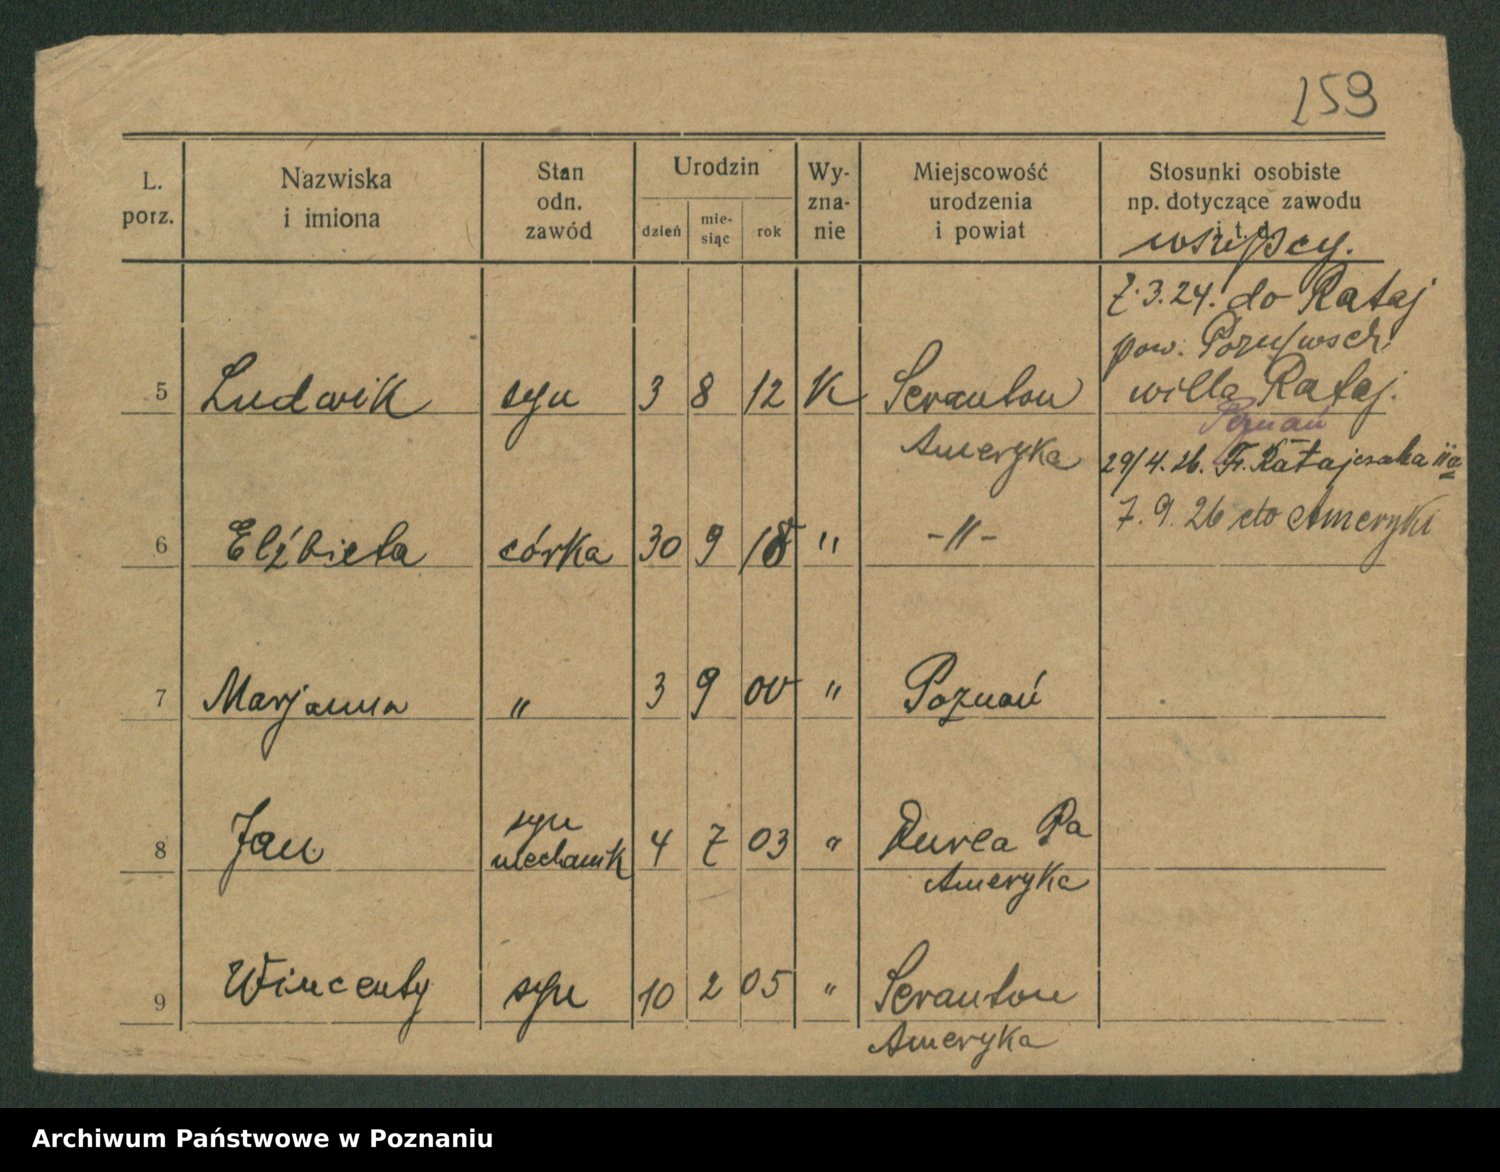 159
L. porz.
Nazwiska i imiona
Stan odn. zawód
Urodzin
dzień
mie-siąc
rok
Wy-zna-nie
Miejscowość urodzenia i powiat
Stosunki osobiste
np. dotyczące zawodu
i t. d.
wszyscy.
7.3.24. do Rataj
pow. Pozn/wsch.
willa Rataj.
Poznań
29/4.26. Fr. Ratajczaka 11a
7.9.26 do Ameryki
5 Ludwik syn 3 8 12 K Scranton
Ameryka
6 Elżbieta córka 30 9 18 " -"-
7 Marjanna " 3 9 00 " Poznań
8 Jan syn mechanik 4 7 03 " Durea Pa
Ameryka
9 Wincenty syn 10 2 05 " Scranton
Ameryka
Archiwum Państwowe w Poznaniu